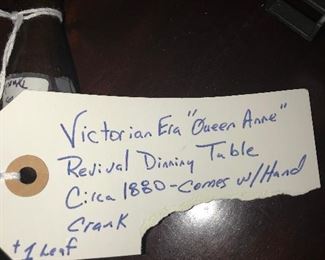 Victorian Era "Queen Anne"
Revival Dinning Table
Circa 1880-Comes w/Hand
Crank
+ 1 Leaf